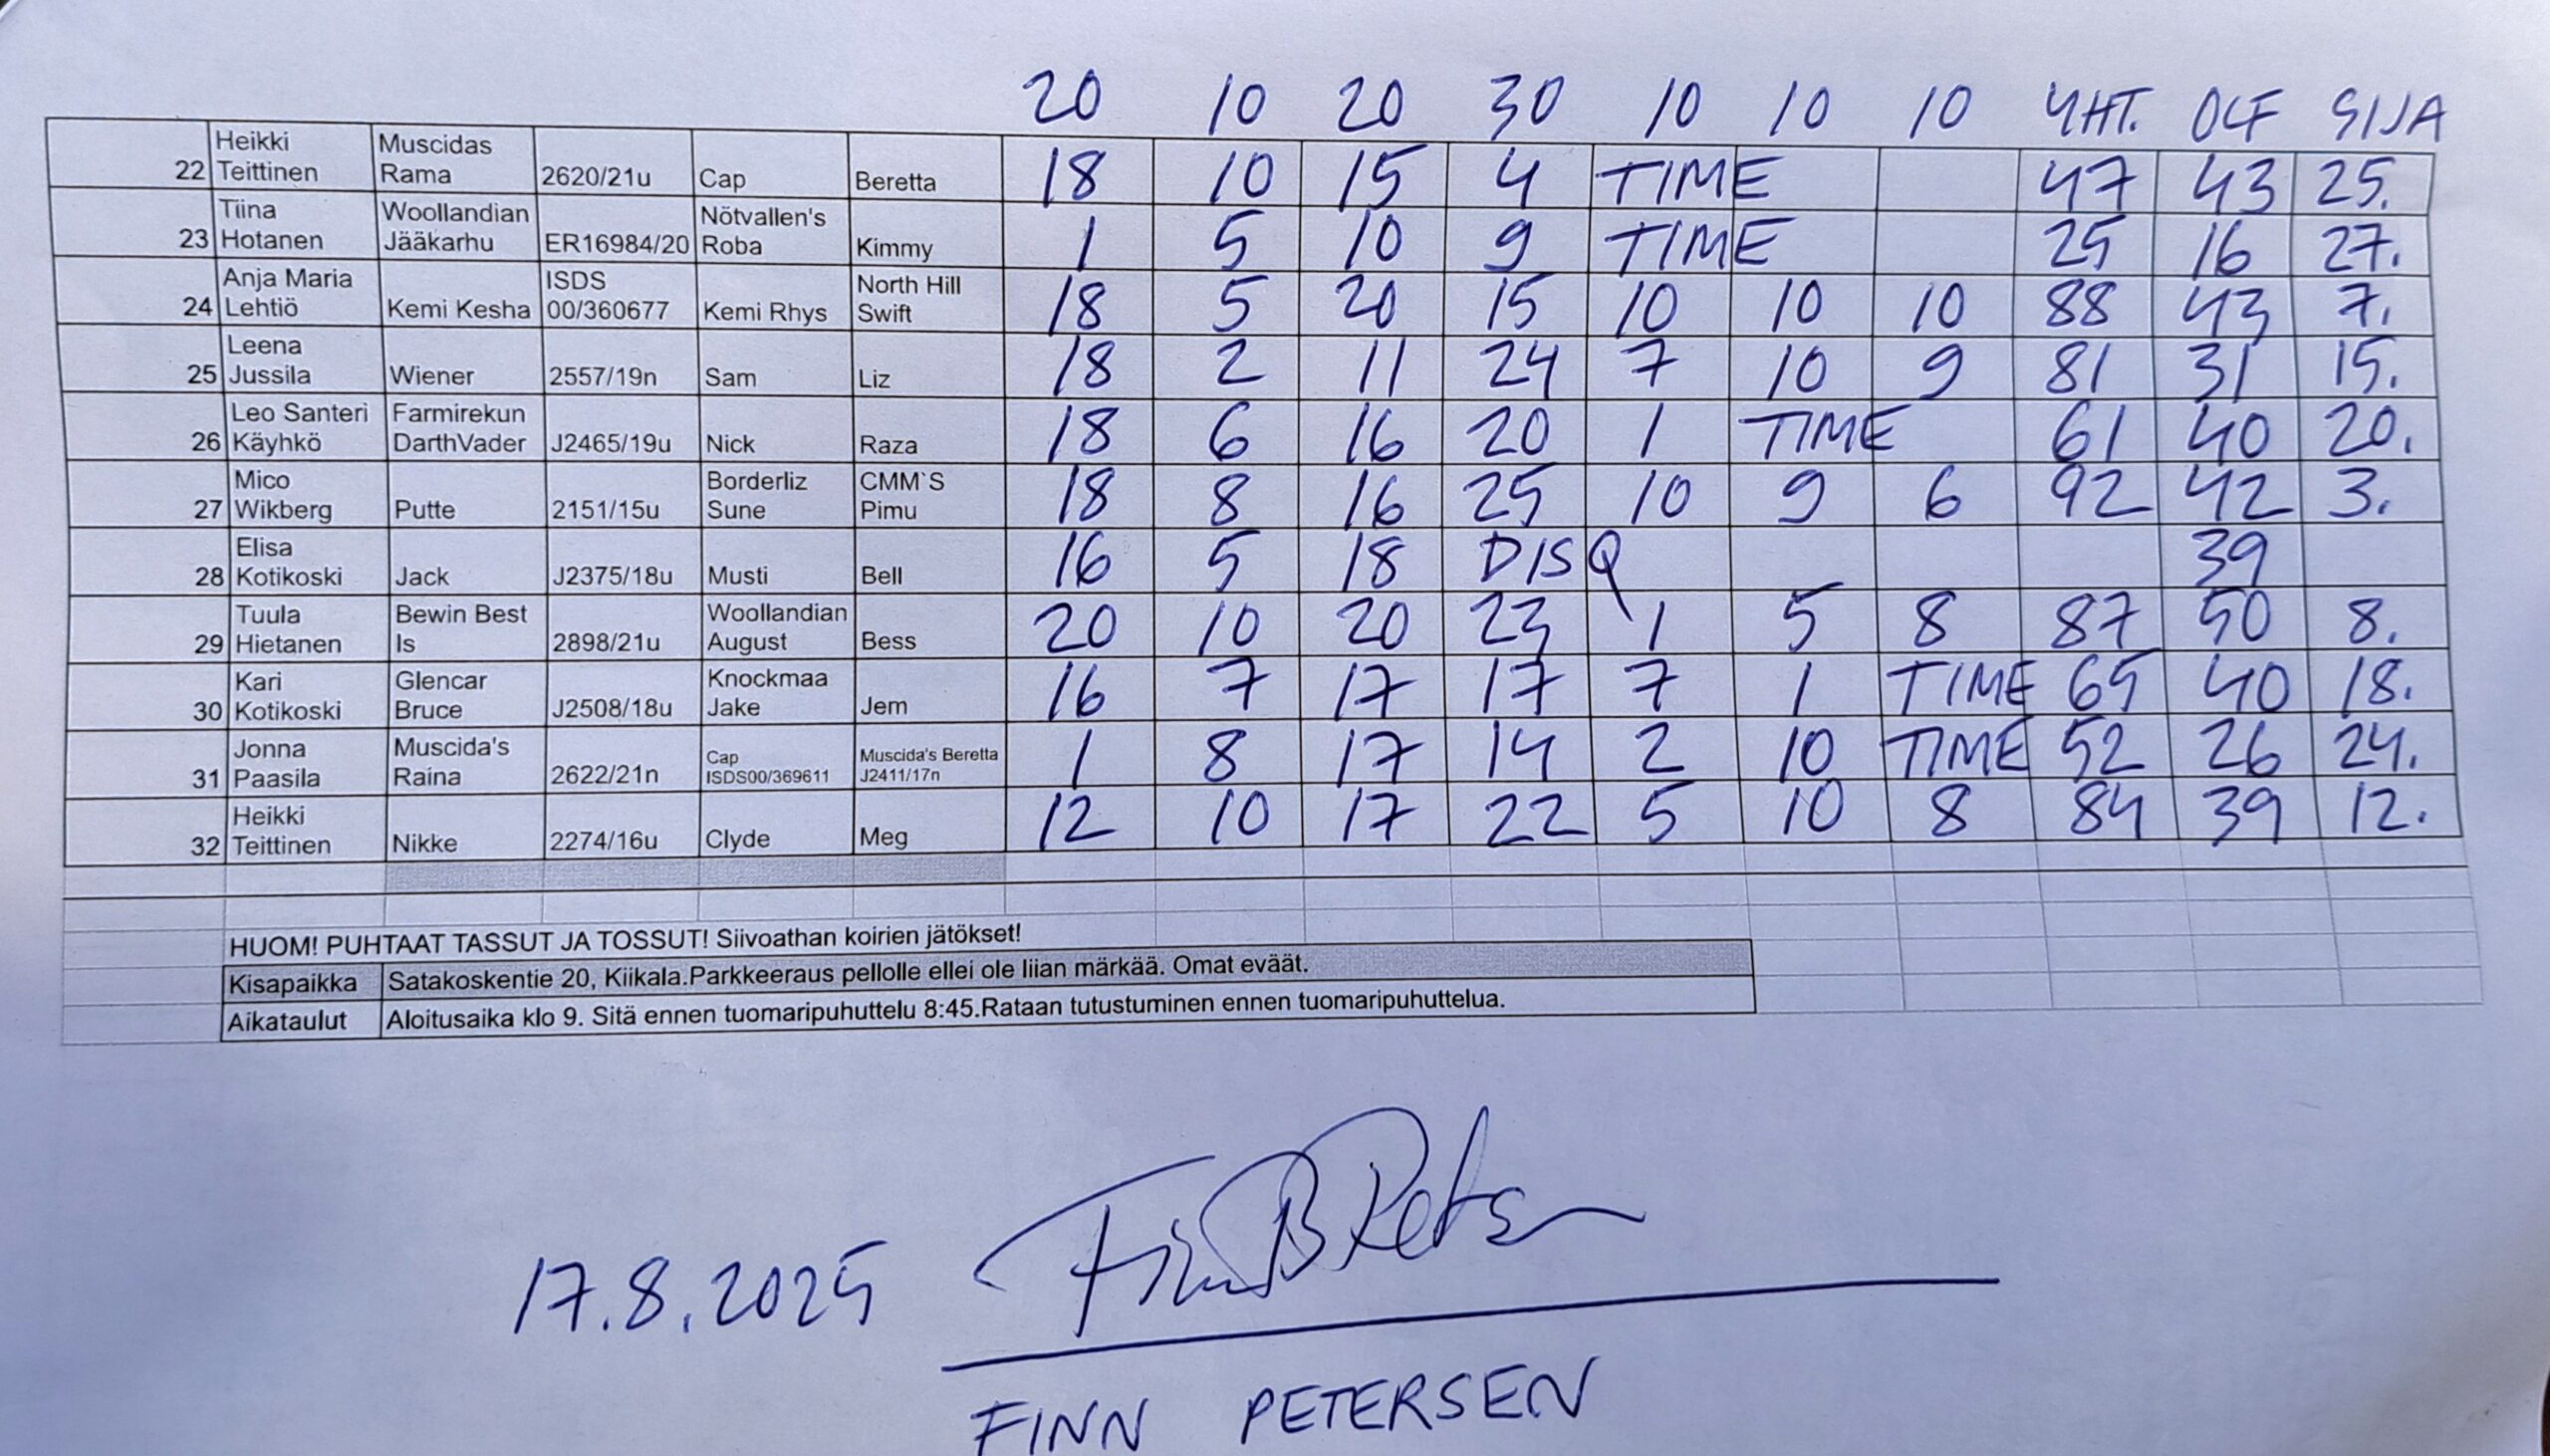 20 10 20 30 10 10 10 YHT. OLF SIJA
22 Heikki Teittinen Muscidas Rama 2620/21u Cap Beretta 18 10 15 4 TIME 47 43 25.
23 Tiina Hotanen Woollandian Jääkarhu ER16984/20 Nötvallen's Roba Kimmy 1 5 10 9 TIME 25 16 27.
24 Anja Maria Lehtiö Kemi Kesha ISDS 00/360677 Kemi Rhys North Hill Swift 18 5 20 15 10 10 10 88 43 7.
25 Leena Jussila Wiener 2557/19n Sam Liz 18 2 11 24 7 10 9 81 31 15.
26 Leo Santeri Käyhkö Farmirekun DarthVader J2465/19u Nick Raza 18 6 16 20 1 TIME 61 40 20.
27 Mico Wikberg Putte 2151/15u Borderliz Sune CMM`S Pimu 18 8 16 25 10 9 6 92 42 3.
28 Elisa Kotikoski Jack J2375/18u Musti Bell 16 5 18 DISQ 39
29 Tuula Hietanen Bewin Best Is 2898/21u Woollandian August Bess 20 10 20 23 1 5 8 87 50 8.
30 Kari Kotikoski Glencar Bruce J2508/18u Knockmaa Jake Jem 16 7 17 17 7 1 TIME 65 40 18.
31 Jonna Paasila Muscida's Raina 2622/21n Cap ISDS00/369611 Muscida's Beretta J2411/17n 1 8 17 14 2 10 TIME 52 26 24.
32 Heikki Teittinen Nikke 2274/16u Clyde Meg 12 10 17 22 5 10 8 84 39 12.
HUOM! PUHTAAT TASSUT JA TOSSUT! Siivoathan koirien jätökset!
Kisapaikka Satakoskentie 20, Kiikala.Parkkeeraus pellolle ellei ole liian märkää. Omat eväät.
Aikataulut Aloitusaika klo 9. Sitä ennen tuomaripuhuttelu 8:45.Rataan tutustuminen ennen tuomaripuhuttelua.
17.8.2025 Finn B Petersen
FINN PETERSEN